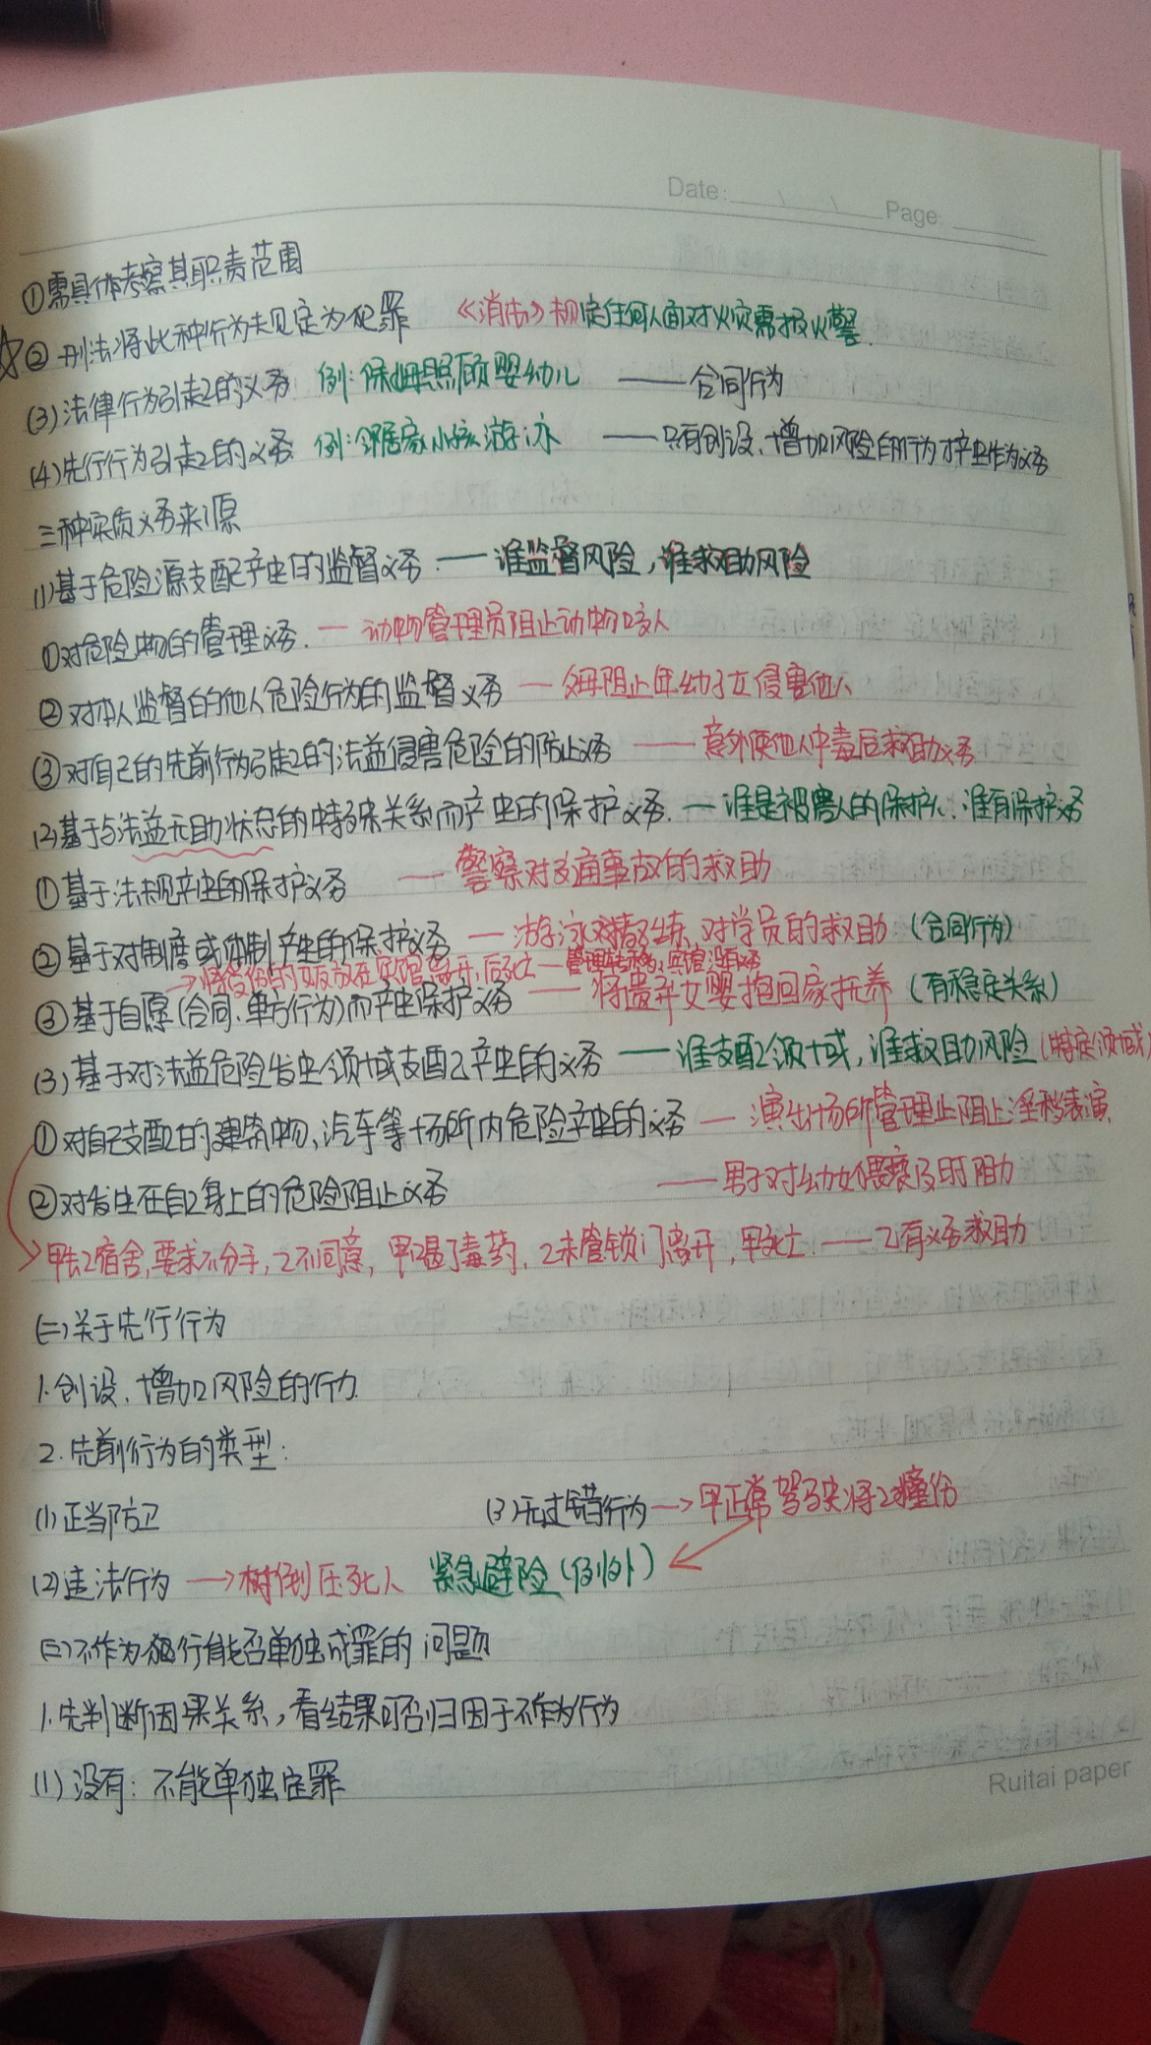 Date: Page
①需具体考察其职责范围
②刑法将此种行为未规定为犯罪 《消法》规定任何人面对火灾需报火警.
(3)法律行为引起的义务 例:保姆照顾婴幼儿 ——合同行为
(4)先行行为引起的义务 例:邻居家小孩游泳 ——只有创设、增加风险的行为才产生作为义务
三种实质义务来源
(1)基于危险源支配产生的监督义务.——谁监督风险,谁救助风险
①对危险物的管理义务.—动物管理员阻止动物咬人
②对本人监督的他人危险行为的监督义务 —父母阻止年幼子女侵害他人
③对自己的先前行为引起的法益侵害危险的防止义务 ——意外使他人中毒后救助义务
(2)基于与法益无助状态的特殊关系而产生的保护义务.—谁是被害人的保护人:谁有保护义务
①基于法规产生的保护义务 —警察对交通事故的救助
②基于对制度或体制产生的保护义务 —游泳教练,对学员的救助(合同行为)
→将受伤的放在宾馆离开,后死亡—管理转移,宾馆没有义务
③基于自愿(合同、单方行为)而产生保护义务 ——将遗弃女婴抱回家抚养(有稳定关系)
(3)基于对法益危险发生领域支配产生的义务 ——谁支配领域,谁救助风险(特定领域)
①对自己支配的建筑物、汽车等场所内危险产生的义务 —演出场所管理止阻止淫秽表演
②对发生在自己身上的危险阻止义务 ——男子对幼女猥亵及时阻力
→甲去乙宿舍,要求不分手,乙不同意,甲喝了毒药,乙未管锁门离开,甲死亡.——乙有义务救助
(二)关于先行行为
1.创设、增加风险的行为
2.先前行为的类型:
(1)正当防卫 (3)无过错行为→甲正常驾驶将乙撞伤
(2)违法行为 →树倒压死人 紧急避险(例外)
(三)不作为犯行能否单独成罪的问题
1.先判断因果关系,看结果可否归因于不作为行为
(1)没有:不能单独定罪
Ruitai paper